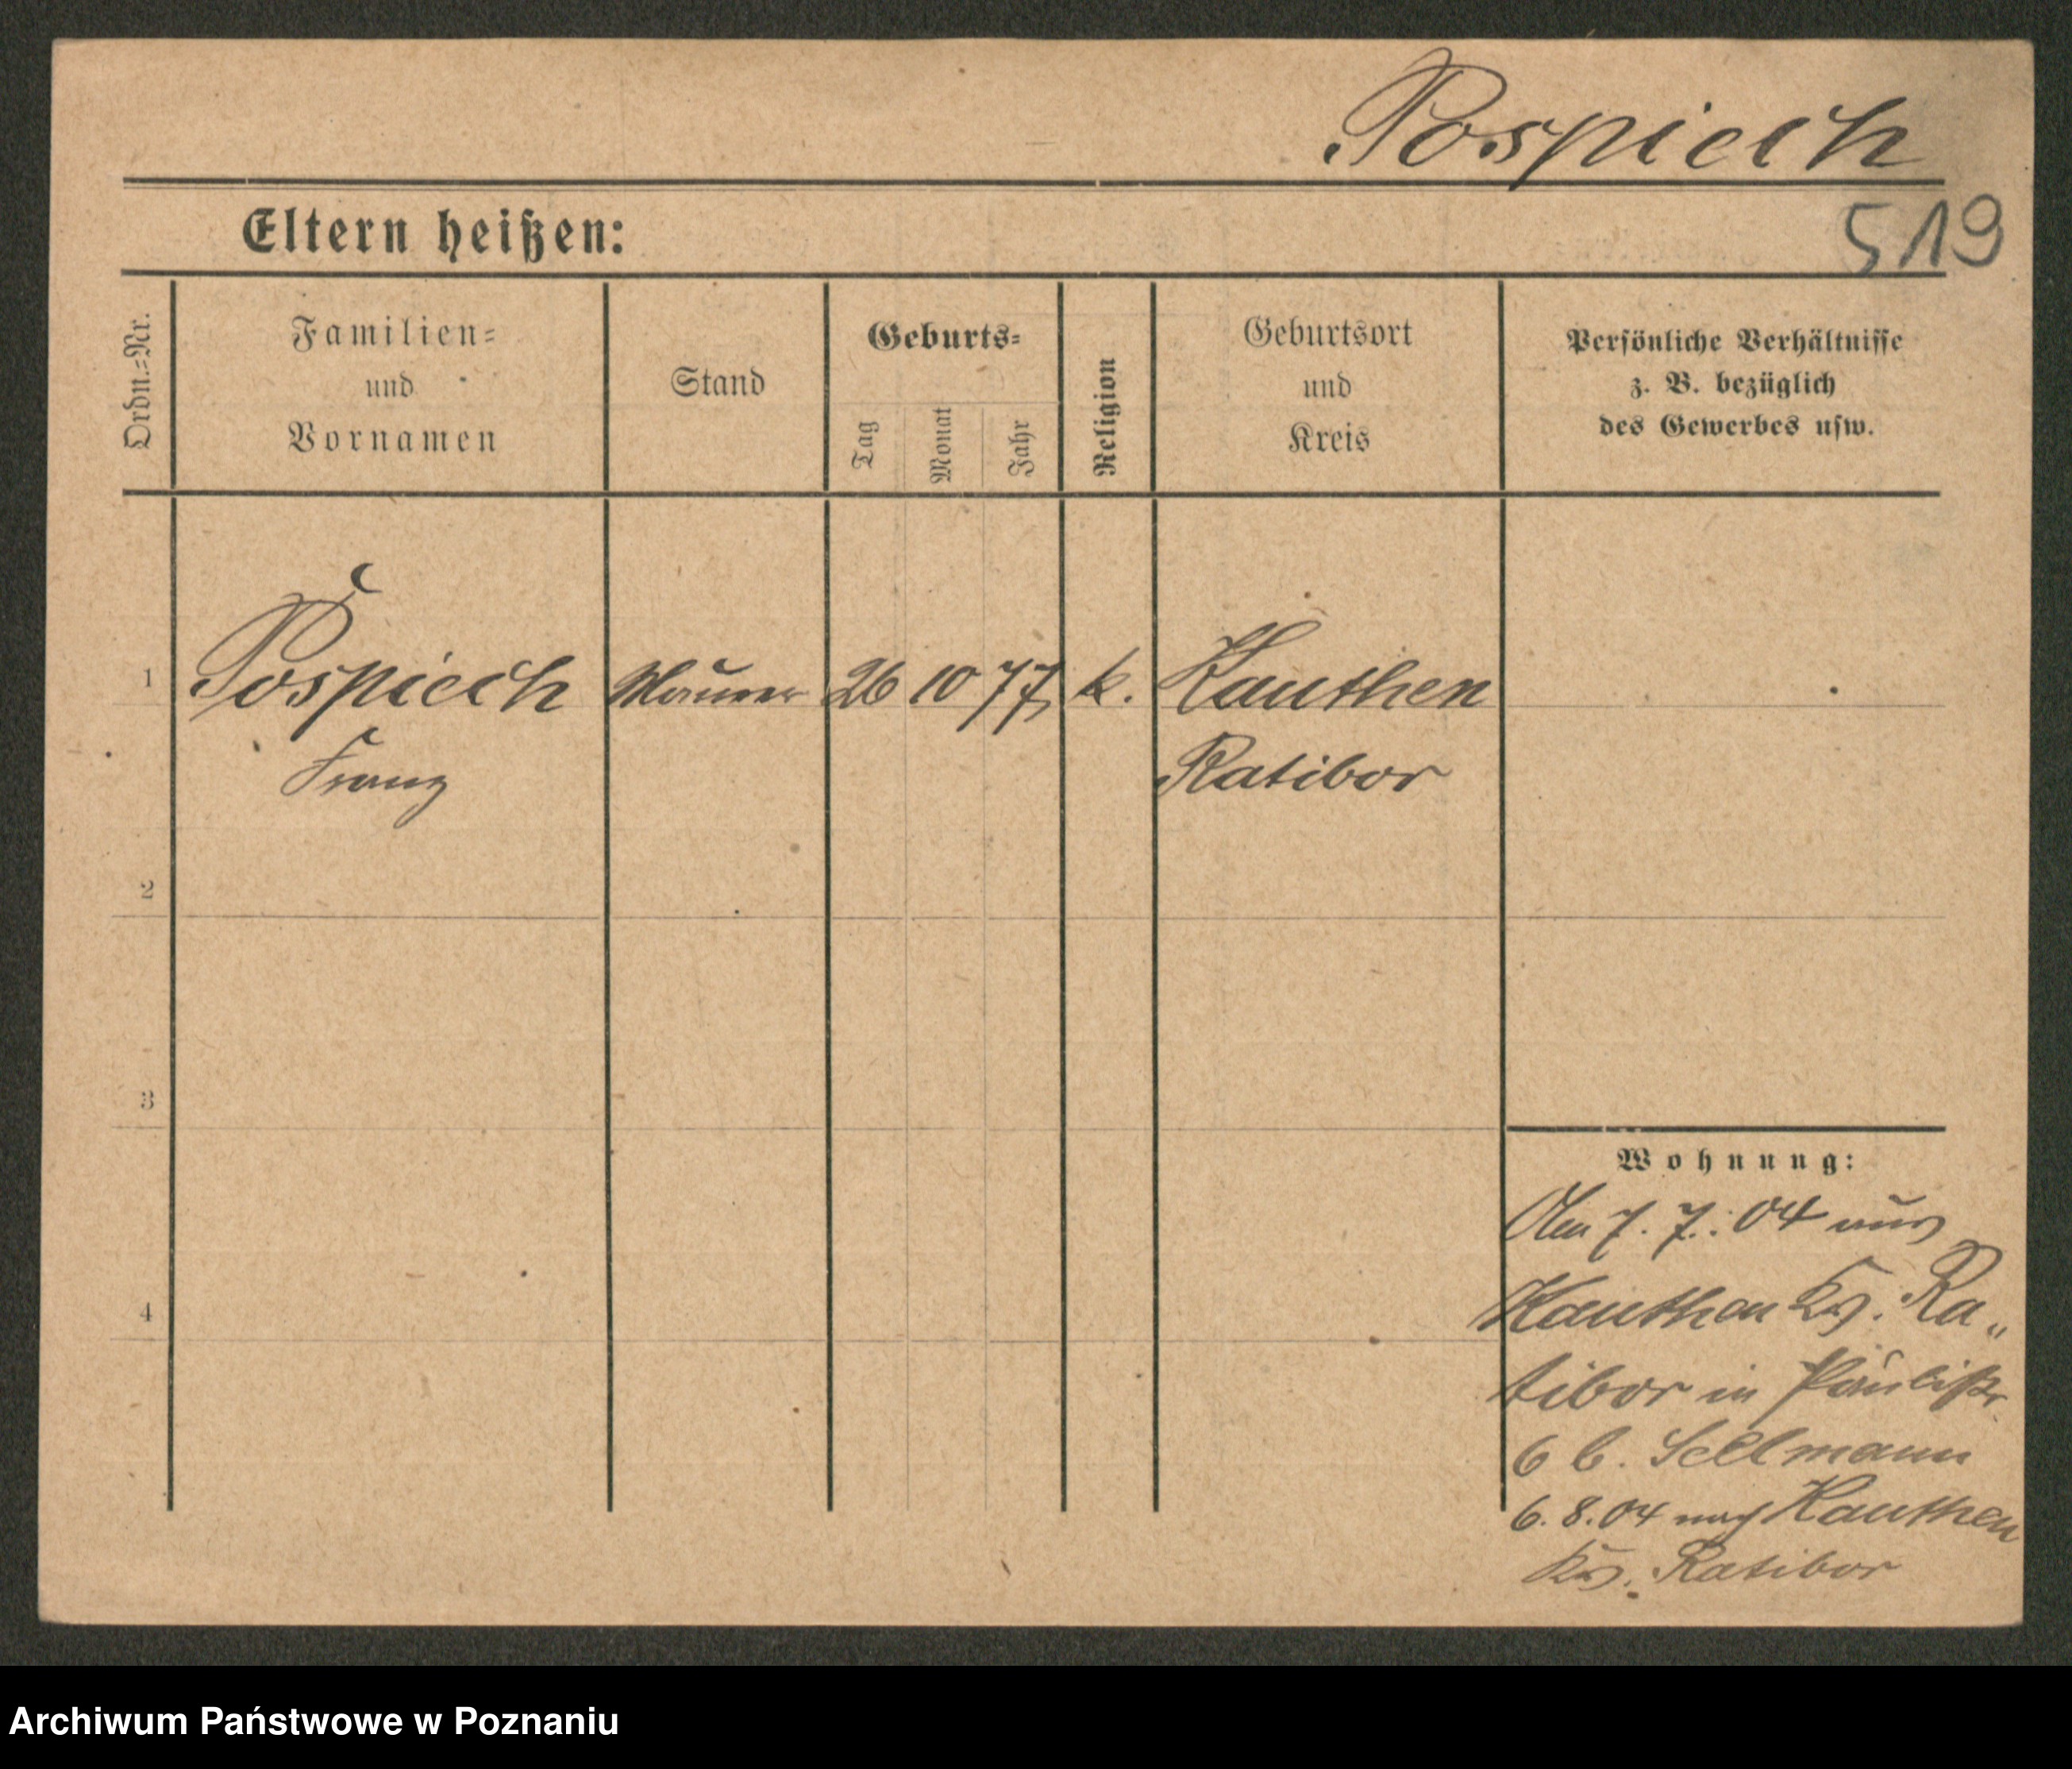 Pospiech
519
Eltern heißen:
Ordn.=Nr.
Familien=
und
Vornamen
Stand
Geburts=
Tag
Monat
Jahr
Religion
Geburtsort
und
Kreis
Persönliche Verhältnisse
z. B. bezüglich
des Gewerbes usw.
1 Pospiech Maurer 26 10 77 k. Kauthen
Franz Ratibor
2
3
4
Wohnung:
Am 7. 7. 04 aus
Kauthen Krs. Ra„
tibor in Paulistr.
6 b. Sellmann
6. 8. 04 nach Kauthen
Krs. Ratibor
Archiwum Państwowe w Poznaniu